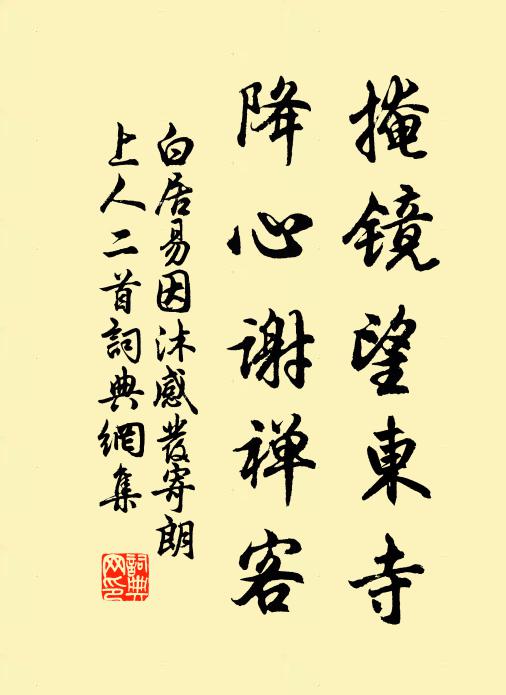 掩镜望東寺
降心谢禅客
白居易因沐感發寄朗
上人二首詞典網集
詞典
网印